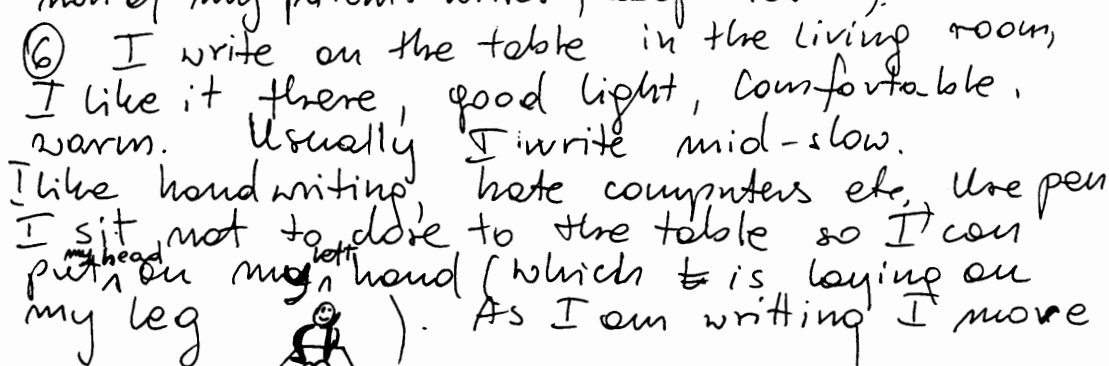 of my parents
⑥ I write on the table in the living room,
I like it there, good light, comfortable,
warm. Usually I write mid-slow.
I like handwriting, hate computers etc. Use pen
I sit not to close to the table so I can
put my head on my left hand (which is laying on
my leg ). As I am writting I move